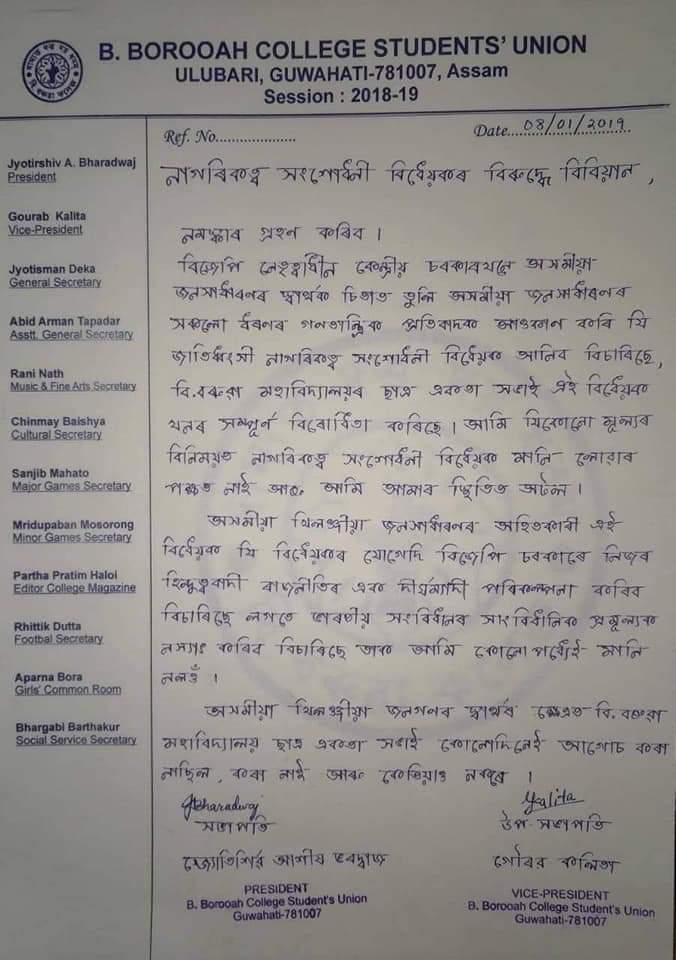 B. BOROOAH COLLEGE STUDENTS' UNION
ULUBARI, GUWAHATI-781007, Assam
Session : 2018-19
Ref. No....................
Date....08/01/2019
Jyotirshiv A. Bharadwaj
President
Gourab Kalita
Vice-President
Jyotisman Deka
General Secretary
Abid Arman Tapadar
Asstt. General Secretary
Rani Nath
Music & Fine Arts Secretary
Chinmay Baishya
Cultural Secretary
Sanjib Mahato
Major Games Secretary
Mridupaban Mosorong
Minor Games Secretary
Partha Pratim Haloi
Editor College Magazine
Rhittik Dutta
Footbal Secretary
Aparna Bora
Girls' Common Room
Bhargabi Barthakur
Social Service Secretary
নাগৰিকত্ব সংশোধনী বিধেয়কৰ বিৰুদ্ধে বিবিয়ান,
নমস্কাৰ গ্ৰহণ কৰিব ।
বিজেপি নেতৃত্বাধীন কেন্দ্ৰীয় চৰকাৰখনে অসমীয়া
জনসাধাৰণৰ স্বাৰ্থক চিতাত তুলি অসমীয়া জনসাধাৰণৰ
সকলো ধৰণৰ গণতান্ত্ৰিক প্ৰতিবাদক আওকাণ কৰি যি
জাতিধ্বংসী নাগৰিকত্ব সংশোধনী বিধেয়ক আনিব বিচাৰিছে,
বি.বৰুৱা মহাবিদ্যালয়ৰ ছাত্ৰ একতা সভাই এই বিধেয়ক
খনৰ সম্পূৰ্ণ বিৰোধিতা কৰিছে । আমি যিকোনো মূল্যৰ
বিনিময়ত নাগৰিকত্ব সংশোধনী বিধেয়ক মানি লোৱাৰ
পক্ষত নাই আৰু আমি আমাৰ স্থিতিত অটল ।
অসমীয়া খিলঞ্জীয়া জনসাধাৰণৰ অহিতকাৰী এই
বিধেয়ক যি বিধেয়কৰ যোগেদি বিজেপি চৰকাৰে নিজৰ
হিন্দুত্ববাদী ৰাজনীতিৰ এক দীৰ্ঘম্যাদী পৰিকল্পনা কৰিব
বিচাৰিছে লগতে ভাৰতীয় সংবিধানৰ সাংবিধানিক মূল্যক
নস্যাৎ কৰিব বিচাৰিছে তাক আমি কোনো পধ্যেই মানি
নলওঁ ।
অসমীয়া খিলঞ্জীয়া জনগণৰ স্বাৰ্থৰ ক্ষেত্ৰত বি.বৰুৱা
মহাবিদ্যালয় ছাত্ৰ একতা সভাই কোনোদিনেই আপোচ কৰা
নাছিল, কৰা নাই আৰু কেতিয়াও নকৰে ।
সভাপতি
উপ-সভাপতি
জ্যোতিৰ্শিৱ আশীষ ভৰদ্বাজ
গৌৰৱ কলিতা
PRESIDENT
B. Borooah College Student's Union
Guwahati-781007
VICE-PRESIDENT
B. Borooah College Student's Union
Guwahati-781007